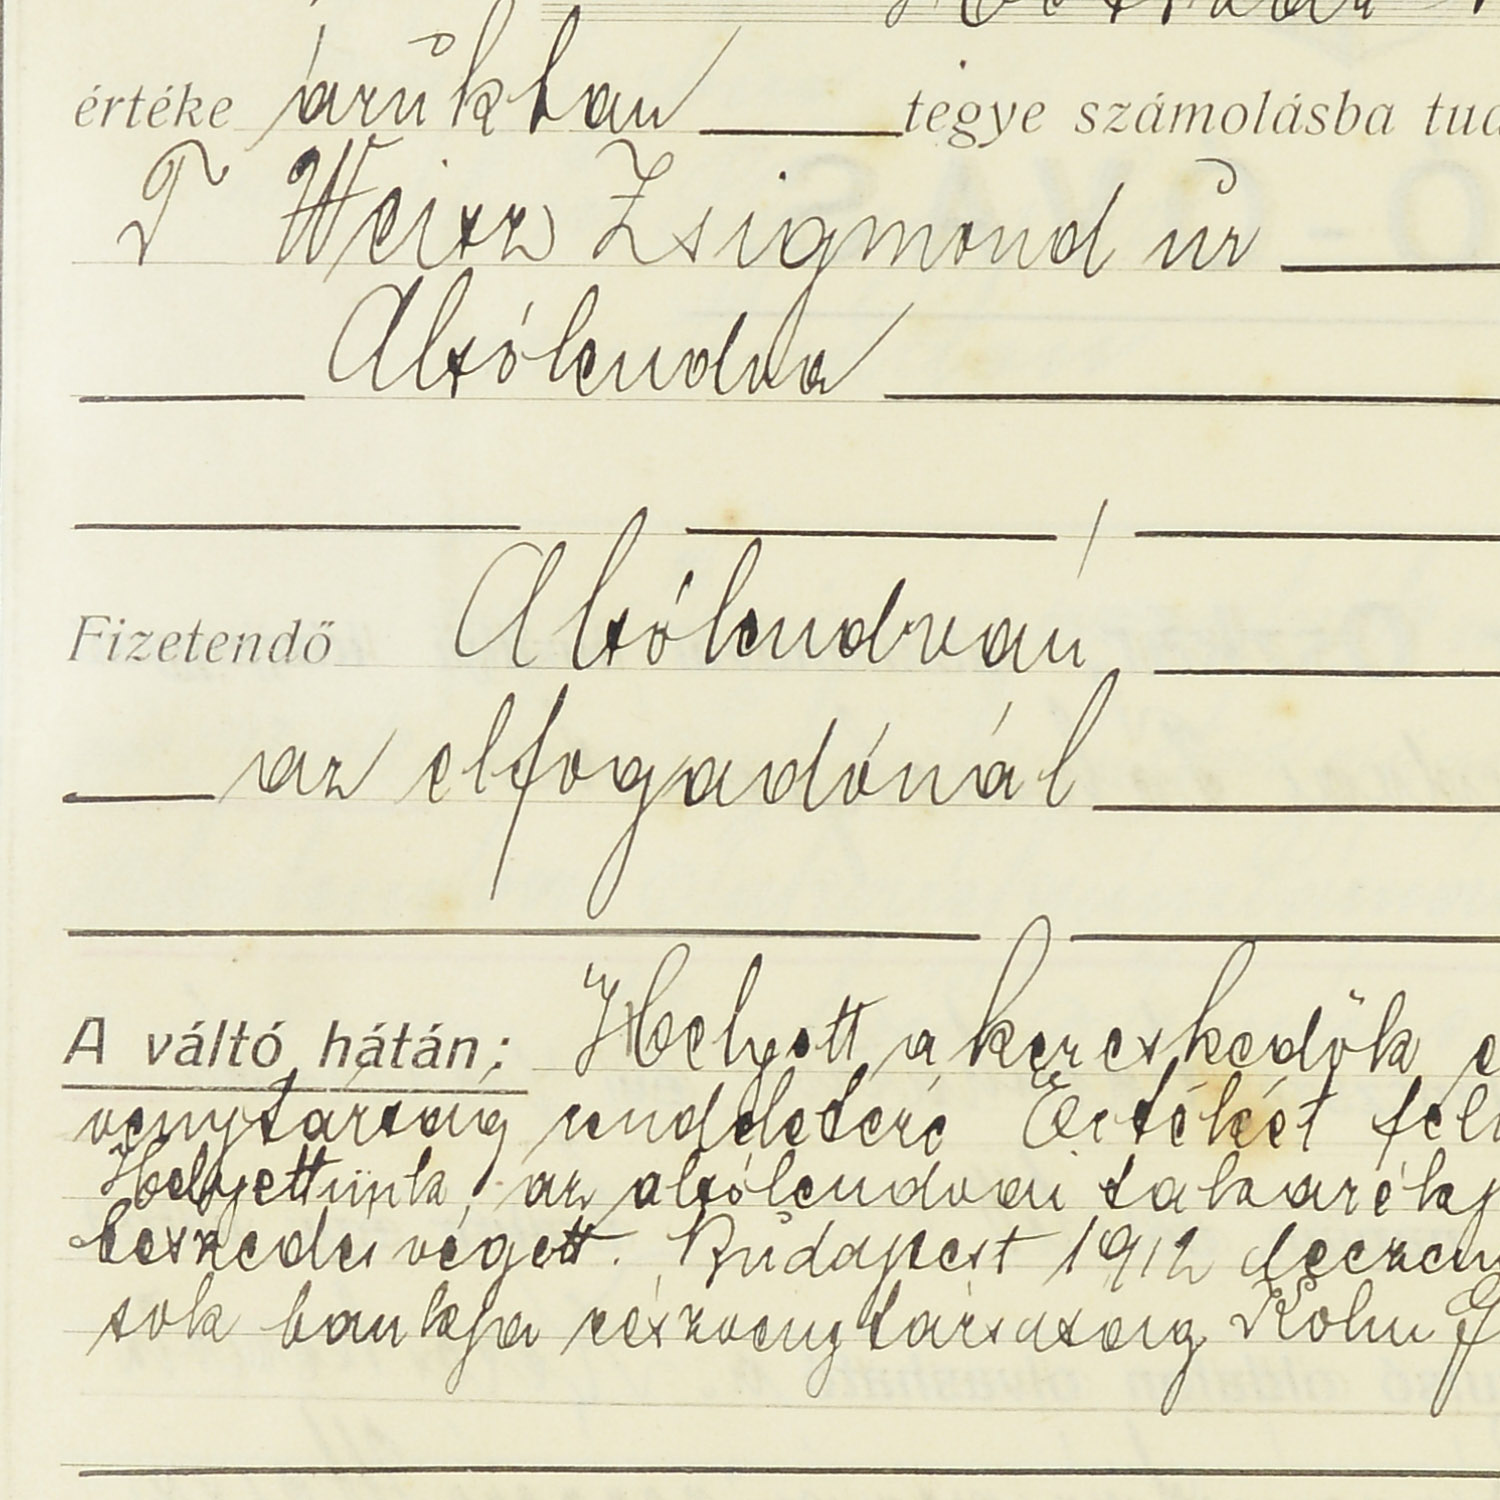 értéke árúkban tegye számolásba
T Weisz Zsigmond úr
Alsólendva
Fizetendő Alsólendván
az elfogadónál
A váltó hátán: Helyett a kereskedők
venytársaság rendeletére Értékét
Helyettünk, az alsólendvai takarékp
beszedés végett. Budapest 1912 deczem
sok bankja részvenytársaság Kohn